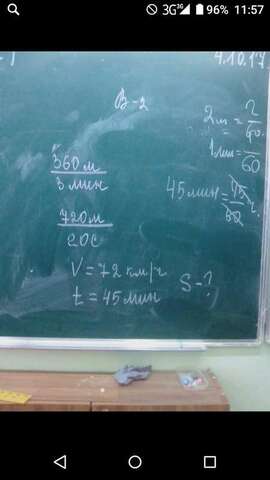 3G 96% 11:57
4.10.17
В-2
360 м
3 мин
720 м
20 с
V = 72 км/ч
t = 45 мин
S - ?
1 мин = 1/60
45 мин = 45/60 ч.